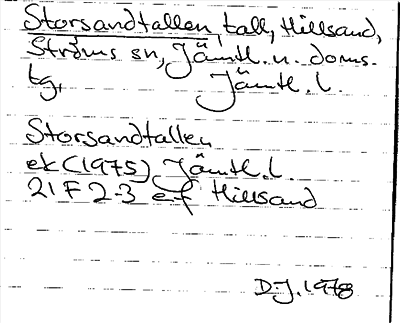 Storsandtallen, tall, Hillsand,
Ströms sn, Jämtl. n. doms.
tg, Jämtl. l.
Storsandtallen
ek (1975) Jämtl. l.
21 F 2-3 e-f Hillsand
D-J. 1978